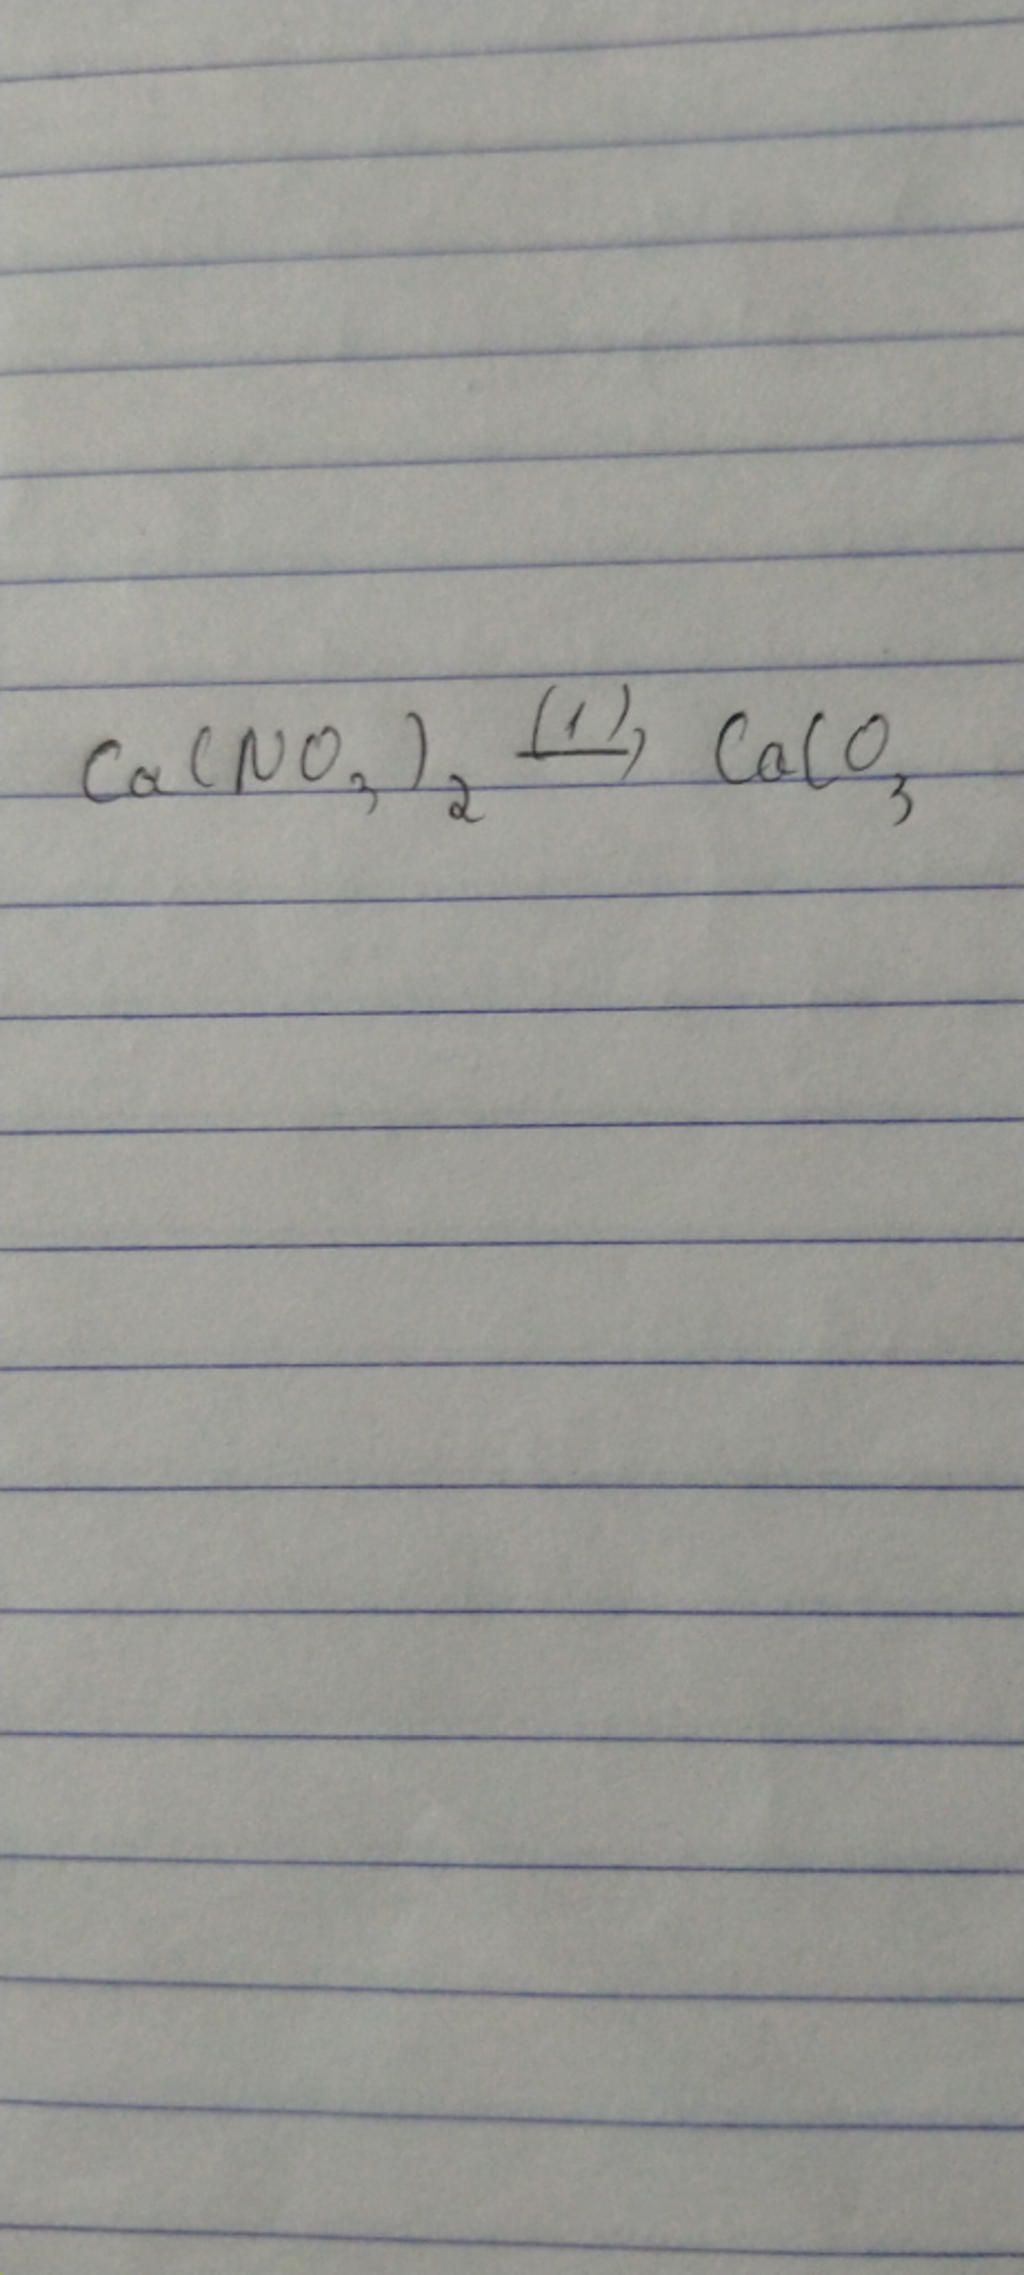 Ca(NO₃)₂ —(1)→ CaCO₃